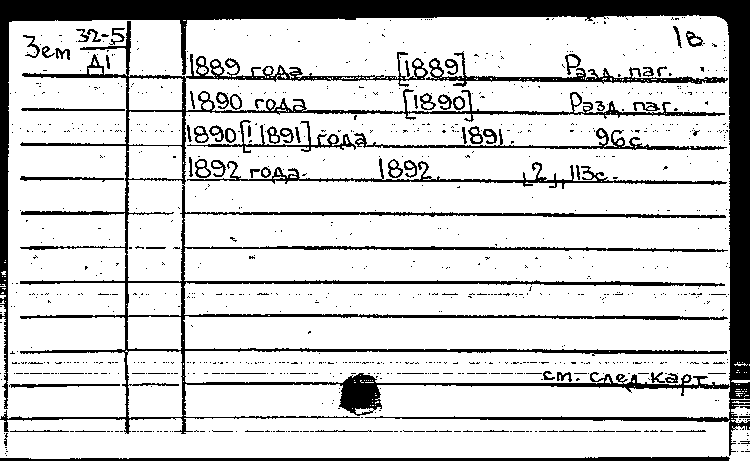 1в.
Зет 32-5
Д1
1889 года. [1889] Разд. паг.
1890 года [1890]. Разд. паг.
1890 [! 1891] года. 1891. 96 с.
1892 года. 1892. [2], 113 с.
ст. след. карт.